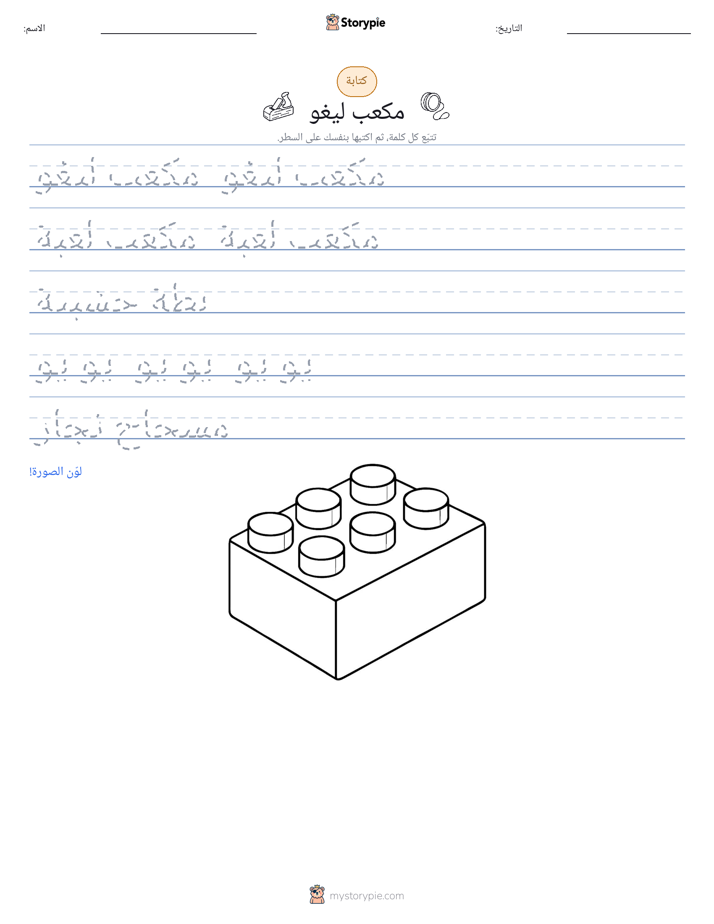 Storypie
الاسم:
التاريخ:
كتابة
مكعب ليغو
تتبّع كل كلمة، ثم اكتبها بنفسك على السطر.
مكعب ليغو مكعب ليغو
مكعب لعبة مكعب لعبة
بطة خشبية
يو يو يو يو يو يو
مسحاج نجار
لوّن الصورة!
mystorypie.com